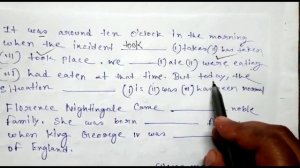 It was around ten o'clock in the morning
when the incident took (i) takes (ii) has taken
(iii) took place, we (i) ate (ii) were eating
(iii) had eaten at that time. But today, the
situation (i) is (ii) was (iii) has been normal
Florence Nightingale came noble
family. She was born
when King George IV was
of England.